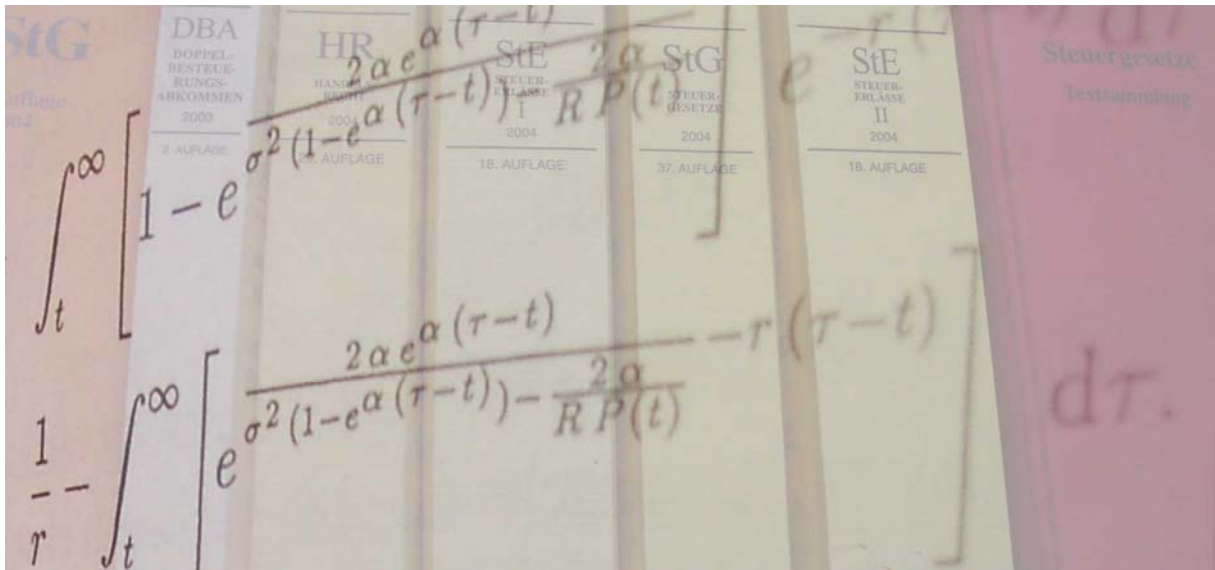 StG
DBA
DOPPEL-
BESTEUE-
RUNGS-
ABKOMMEN
2003
2. AUFLAGE
HR
2004
AUFLAGE
StE
STEUER-
ERLÄSSE
I
2004
18. AUFLAGE
StG
STEUER-
GESETZE
2004
37. AUFLAGE
StE
STEUER-
ERLÄSSE
II
2004
18. AUFLAGE
Steuergesetze
Textsammlung
∫_t^∞ [1 − e^{2αe^{α(τ−t)} / (σ²(1−e^{α(τ−t)}) − 2α/(R P(t)))}] e^{−r(τ−t)} dτ
1/r − ∫_t^∞ [e^{2αe^{α(τ−t)} / (σ²(1−e^{α(τ−t)}) − 2α/(R P(t))) − r(τ−t)}] dτ.